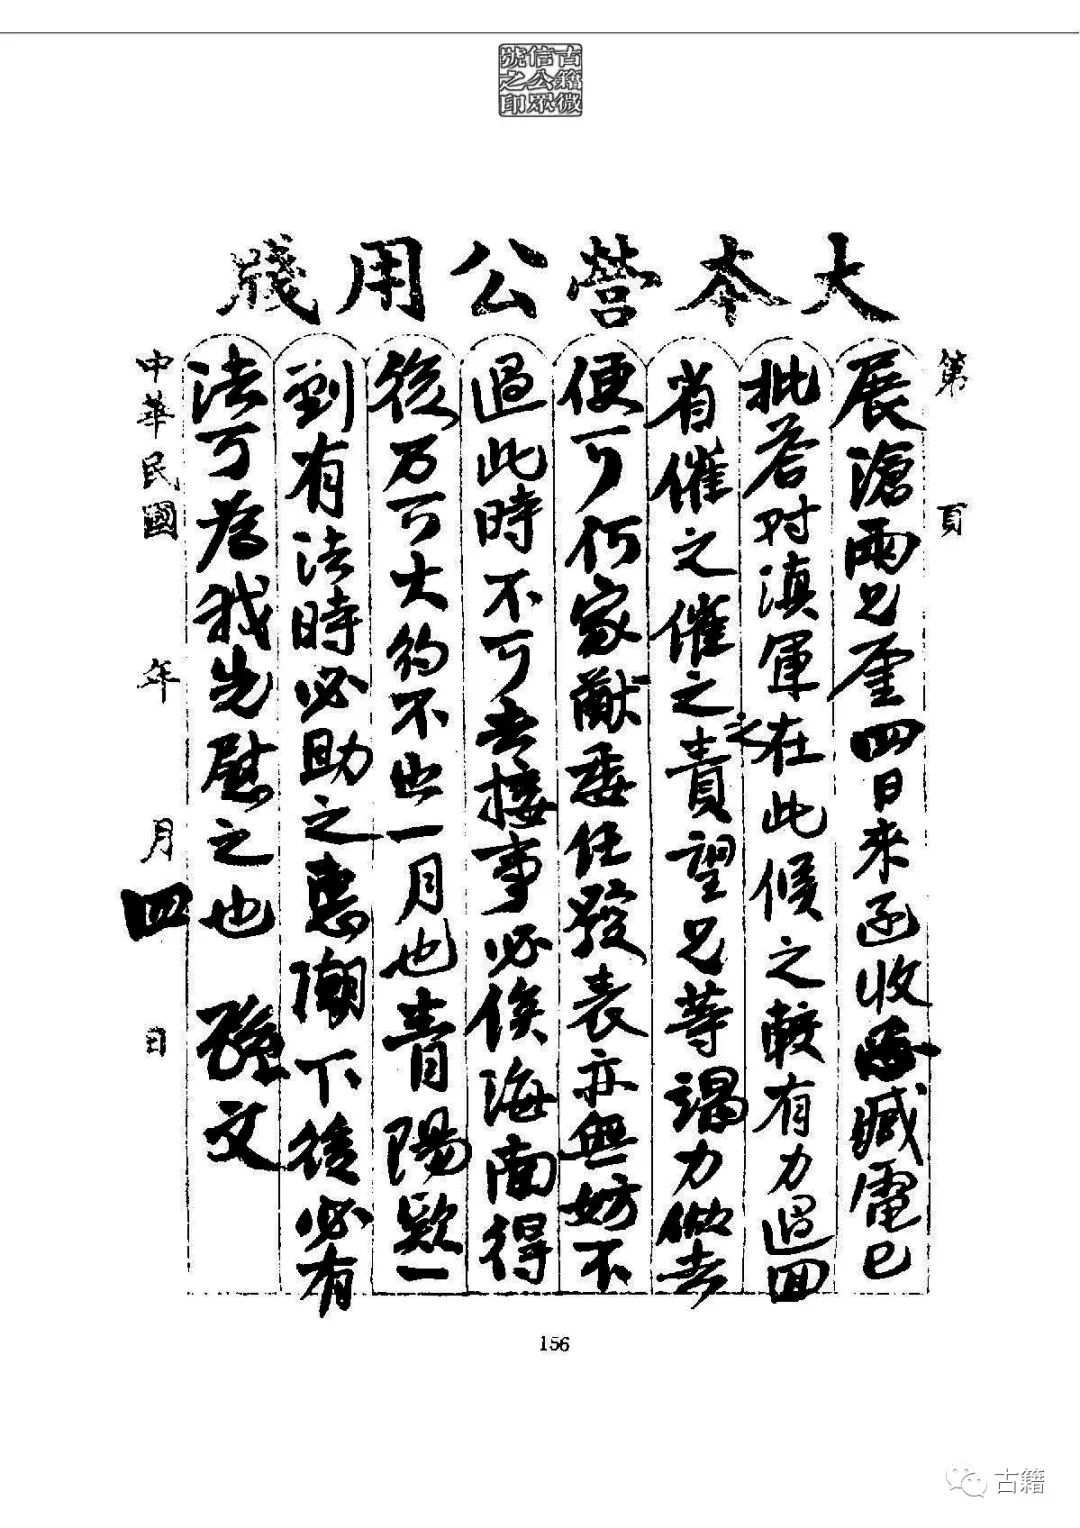 古籍微
信公眾
號之印
大本營公用牋
第 頁
展滄兩兄鑒四日來函收悉臧電已
批答对滇軍之在此候之較有力過回
省催之催之責望兄等竭力做去
便可何家猷委任發表亦無妨不
過此時不可去接事必俟海南得
後方可大約不出一月也青陽款一
到有法時必助之惠潮下後必有
法可為我先慰之也 孫文
中華民國 年 月四日
156
古籍